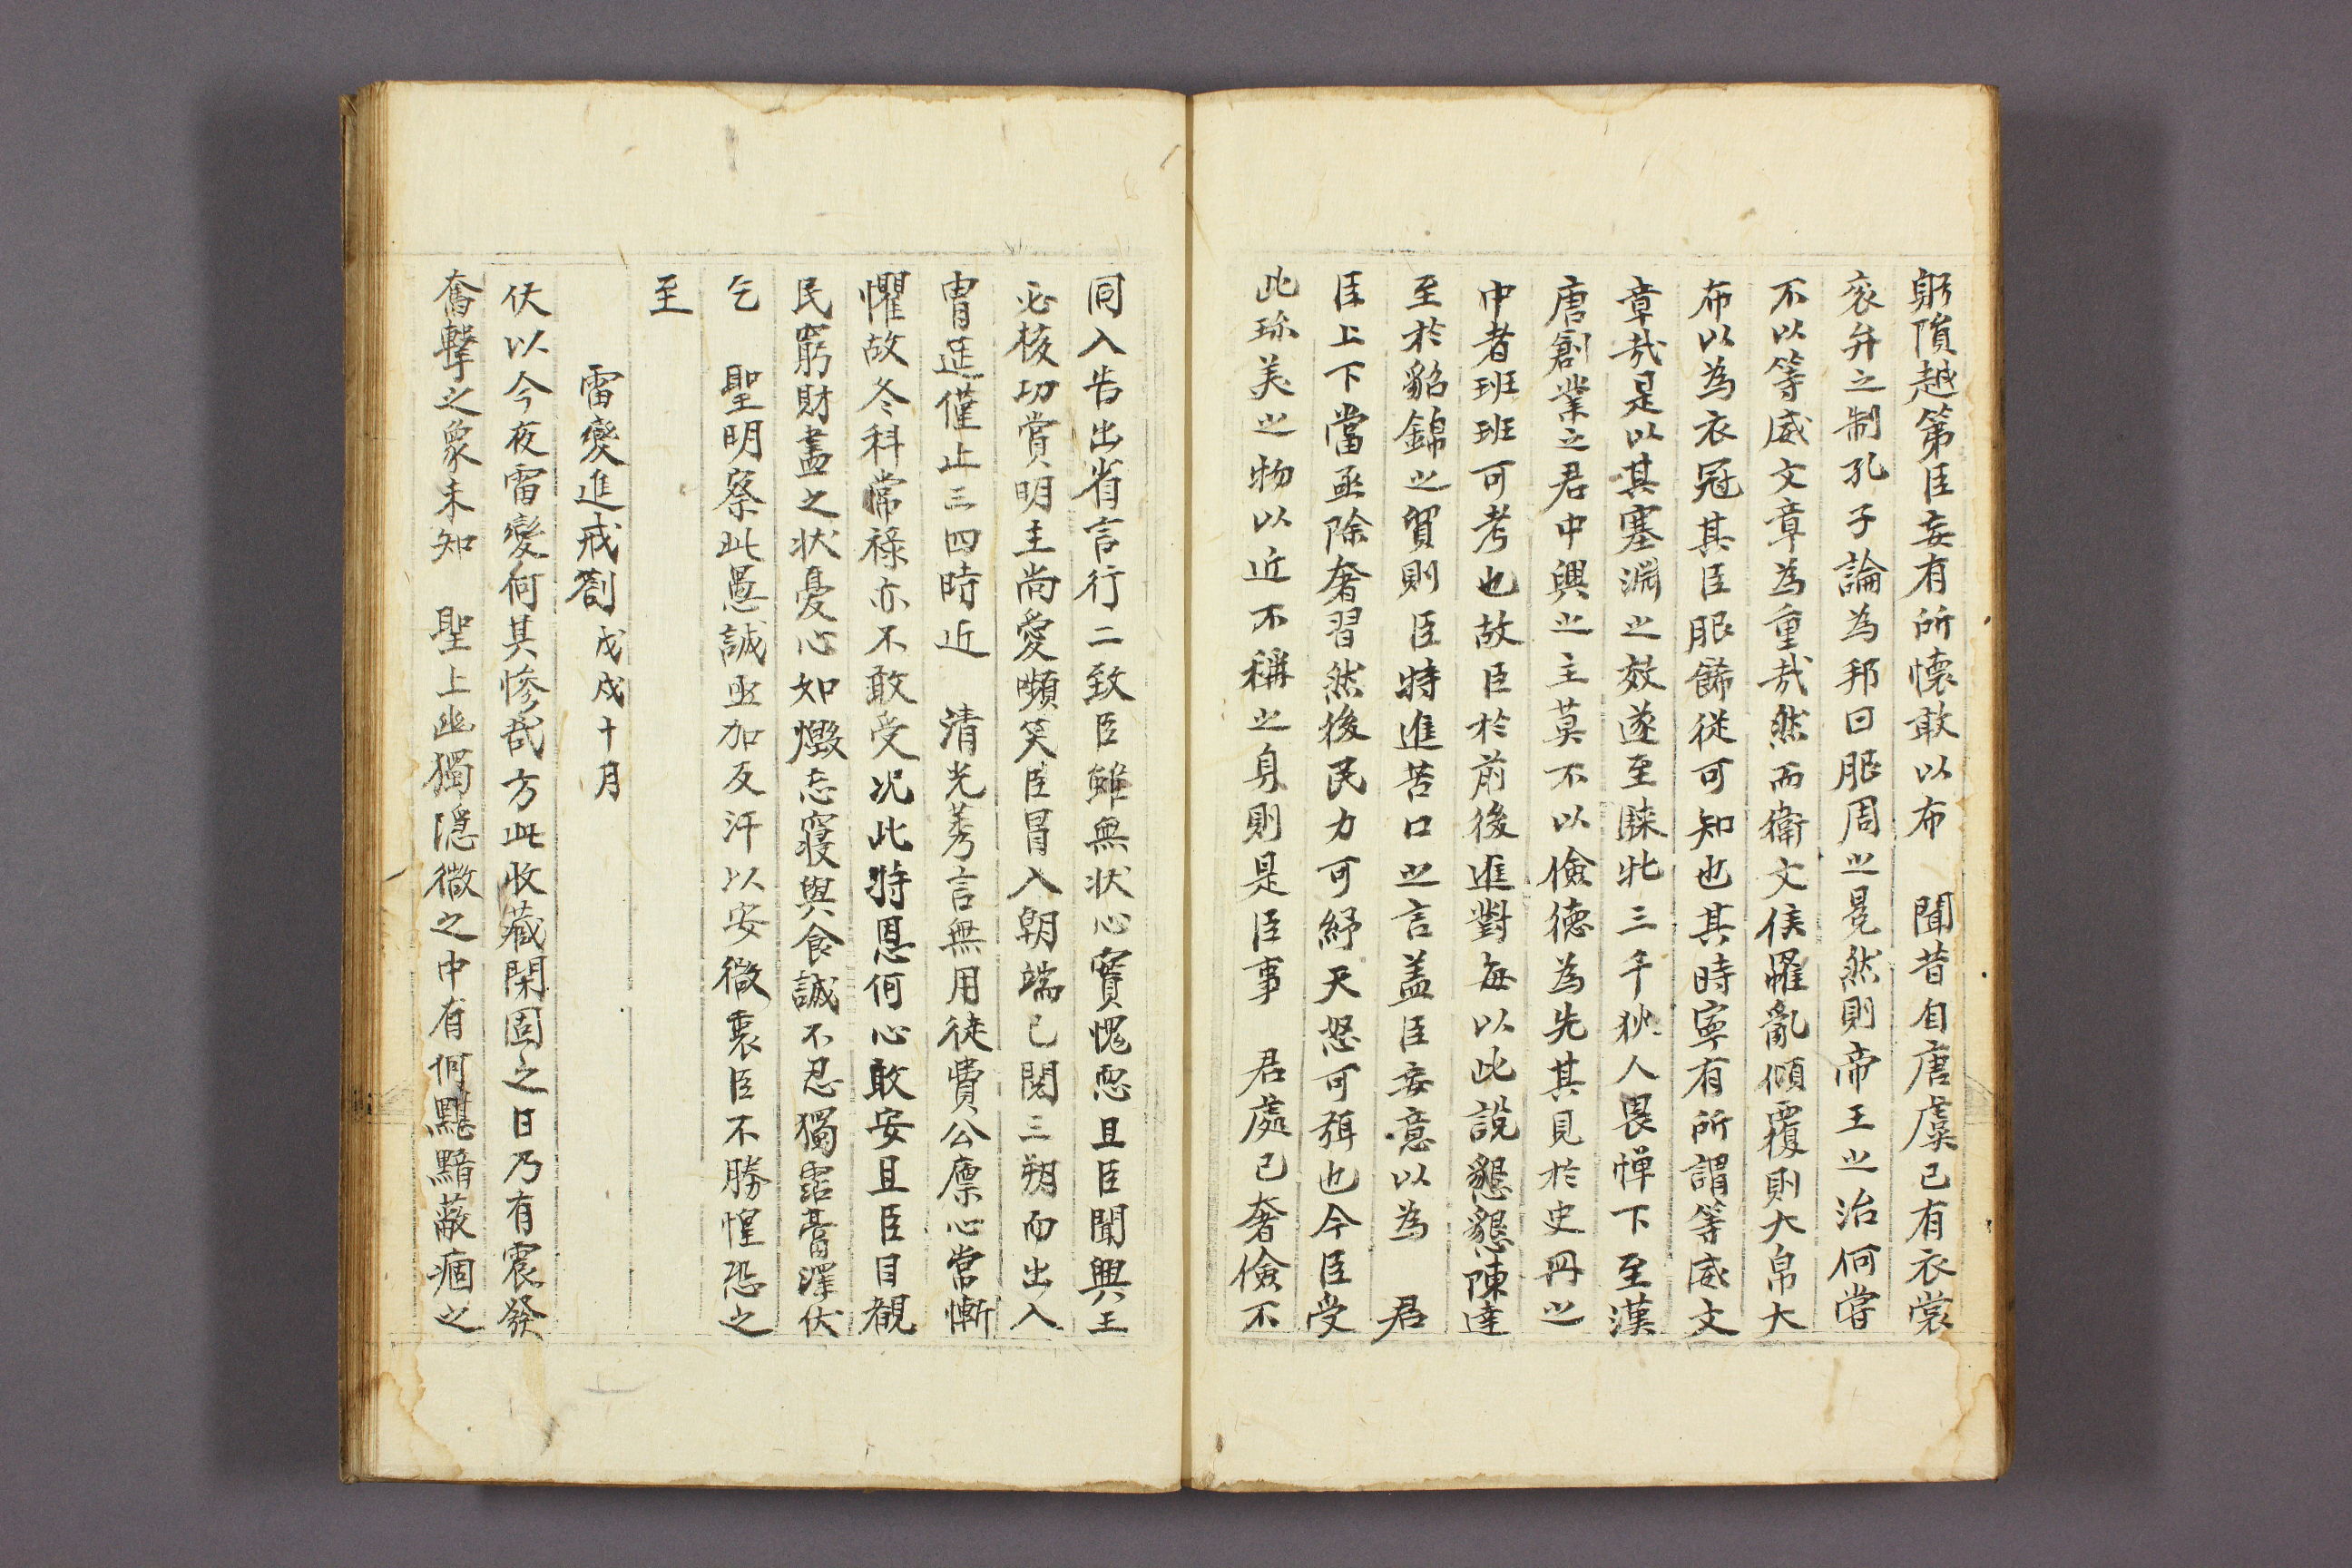 躬隕越第臣妄有所懷敢以布　聞昔自唐虞已有衣裳
衮弁之制孔子論為邦曰服周之冕然則帝王之治何嘗
不以等威文章為重哉然而衛文侯罹亂傾覆則大帛大
布以為衣冠其臣服餙從可知也其時寧有所謂等威文
章哉是以其塞淵之效遂至騋牝三千狄人畏憚下至漢
唐創業之君中興之主莫不以儉德為先其見於史冊之
中者班班可考也故臣於前後進對每以此說懇懇陳達
至於貂錦之貿則臣特進苦口之言盖臣妄意以為　君
臣上下當亟除奢習然後民力可紓天怒可弭也今臣受
此珎美之物以近不稱之身則是臣事　君處己奢儉不
同入告出省言行二致臣雖無状心實愧恧且臣聞興王
必核功賞明主尚愛嚬笑臣冒入朝端已閱三朔而出入
胄筵僅止三四時近　清光莠言無用徒費公廩心常慚
懼故冬科常祿亦不敢受况此特恩何心敢安且臣目覩
民窮財盡之状憂心如燬忘寢與食誠不忍獨霑膏澤伏
乞　聖明察此愚誠亟加反汗以安微衷臣不勝惶恐之
至
雷變進戒劄　戊戌十月
伏以今夜雷變何其慘哉方此收藏閉固之日乃有震發
奮擊之象未知　聖上幽獨隱微之中有何黮黯蔽痼之